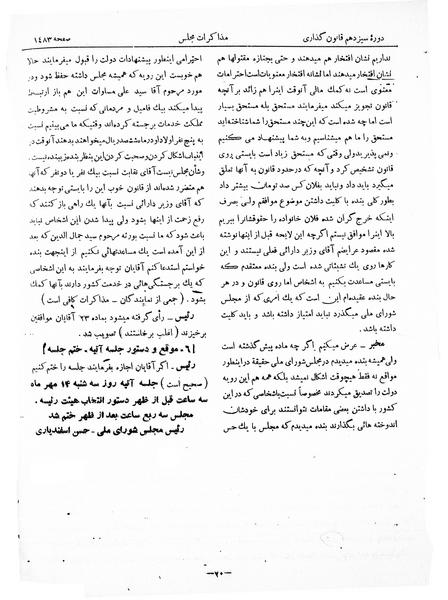 دورهٔ سیزدهم قانون گذاری
مذاکرات مجلس
صفحه ۱۴۸۳
نداریم نشان افتخار هم میدهند و حتی بجنازه مقتولها هم
نشان افتخار میدهند اما نشانه افتخار معنویات است احترامات
معنوی است نه کمک مالی آنوقت اینرا هم زائد بر آنچه
قانون تجویز میکند میفرمایند مستحق بله مستحق بسیار
است اما چه شده است که این چند مستحق را شما شناخته‌اید
مستحق را ما هم میشناسیم و به شما پیشنهاد می کنیم
ونمی پذیرید ولی وقتی که مستحق زیاد است بایستی روی
قانون تشخیص کرد و آنچه که در حدود قانون به آنها تعلق
میگیرد باید داد و نباید بفلان کس صد تومان بیشتر داد
بطور کلی بنده با کلیت داشتن موضوع موافقم ولی بصرف
اینکه خرج گران شده فلان خانواده را حقوقشانرا ببریم
بالا اینرا موافق نیستم اگرچه این لایحه قبل از اینها نوشته
شده مقصود عرایضم آقای وزیر دارائی فعلی نیستند و این
کارها روی یک نشیناتی شده است ولی بنده معتقدم که
بایستی مساعدت بکنیم به اشخاص اما روی قانون و در هر
حال بنده عقیده‌ام این است که یک امری که از مجلس
شورای ملی میگذرد نباید امتیاز داشته باشد و باید کلیت
داشته باشد.
مخبر - عرض میکنم اگر چه ماده پیش گذشته است
ولی همیشه بنده میدیدم در مجلس شورای ملی حقیقة در اینطور
مواقع نه فقط هیچوقت اشکال نمیشد بلکه همه هم این رویه
دولت را تصدیق میکردند مخصوصاً نسبت باشخاصی که در این
کشور با داشتن بعضی مقامات نتوانستند برای خودشان
اندوخته هائی بگذارند بنده میدیدم که مجلس با یک حس
احترامی اینطور پیشنهادات دولت را قبول میفرمایند حالا
هم خوبست این رویه که همیشه مجلس داشته حفظ شود و در
مورد مرحوم آقا سید علی مساوات این هم باز ارتباط
پیدا میکند بیک فامیل و مردمانی که نسبت به مشروطیت
مملکت خدمات برجسته کرده‌اند وقتیکه ما می بینیم نسبت
به پنج نفر اولاد او در ماه ششصد ریال میخواهند بدهند آنوقت در
اینباب اشکال کردن و صحبت کردن این بنظر بنده زیبنده نیست.
وشأن مجلس نیست آقای نقابت نسبت بیک نفر یا دو نفر که آنها
هم متضرر شده‌اند از قانون خوب این را بایستی توجه بدهند
که آقای وزیر دارائی نسبت بآنها یک راهی باز کنند که
رفع زحمت از اینها بشود ولی پیدا شدن این اشخاص نباید
باعث شود که ما نسبت بورثه مرحوم سید جمال الدین که بعد
از این آمده است یک مساعدتهائی نکنیم از اینجهت بنده
خواستم استدعا کنم آقایان توجه بفرمایند به این اشخاصی
که یک برجستگی‌هائی در خدمت کشور دارند بآنها کمک
بشود. (جمعی از نمایندگان - مذاکرات کافی است)
رئیس - رأی گرفته میشود بماده ۲۳ آقایان موافقین
برخیزند (اغلب برخاستند) تصویب شد.
[۶ - موقع و دستور جلسه آتیه - ختم جلسه]
رئیس - اگر آقایان اجازه بفرمایند جلسه را ختم کنیم
(صحیح است) جلسه آتیه روز سه شنبه ۱۴ مهر ماه
سه ساعت قبل از ظهر دستور انتخاب هیئت رئیسه.
مجلس سه ربع ساعت بعد از ظهر ختم شد
رئیس مجلس شورای ملی - حسن اسفندیاری
—۷۰—